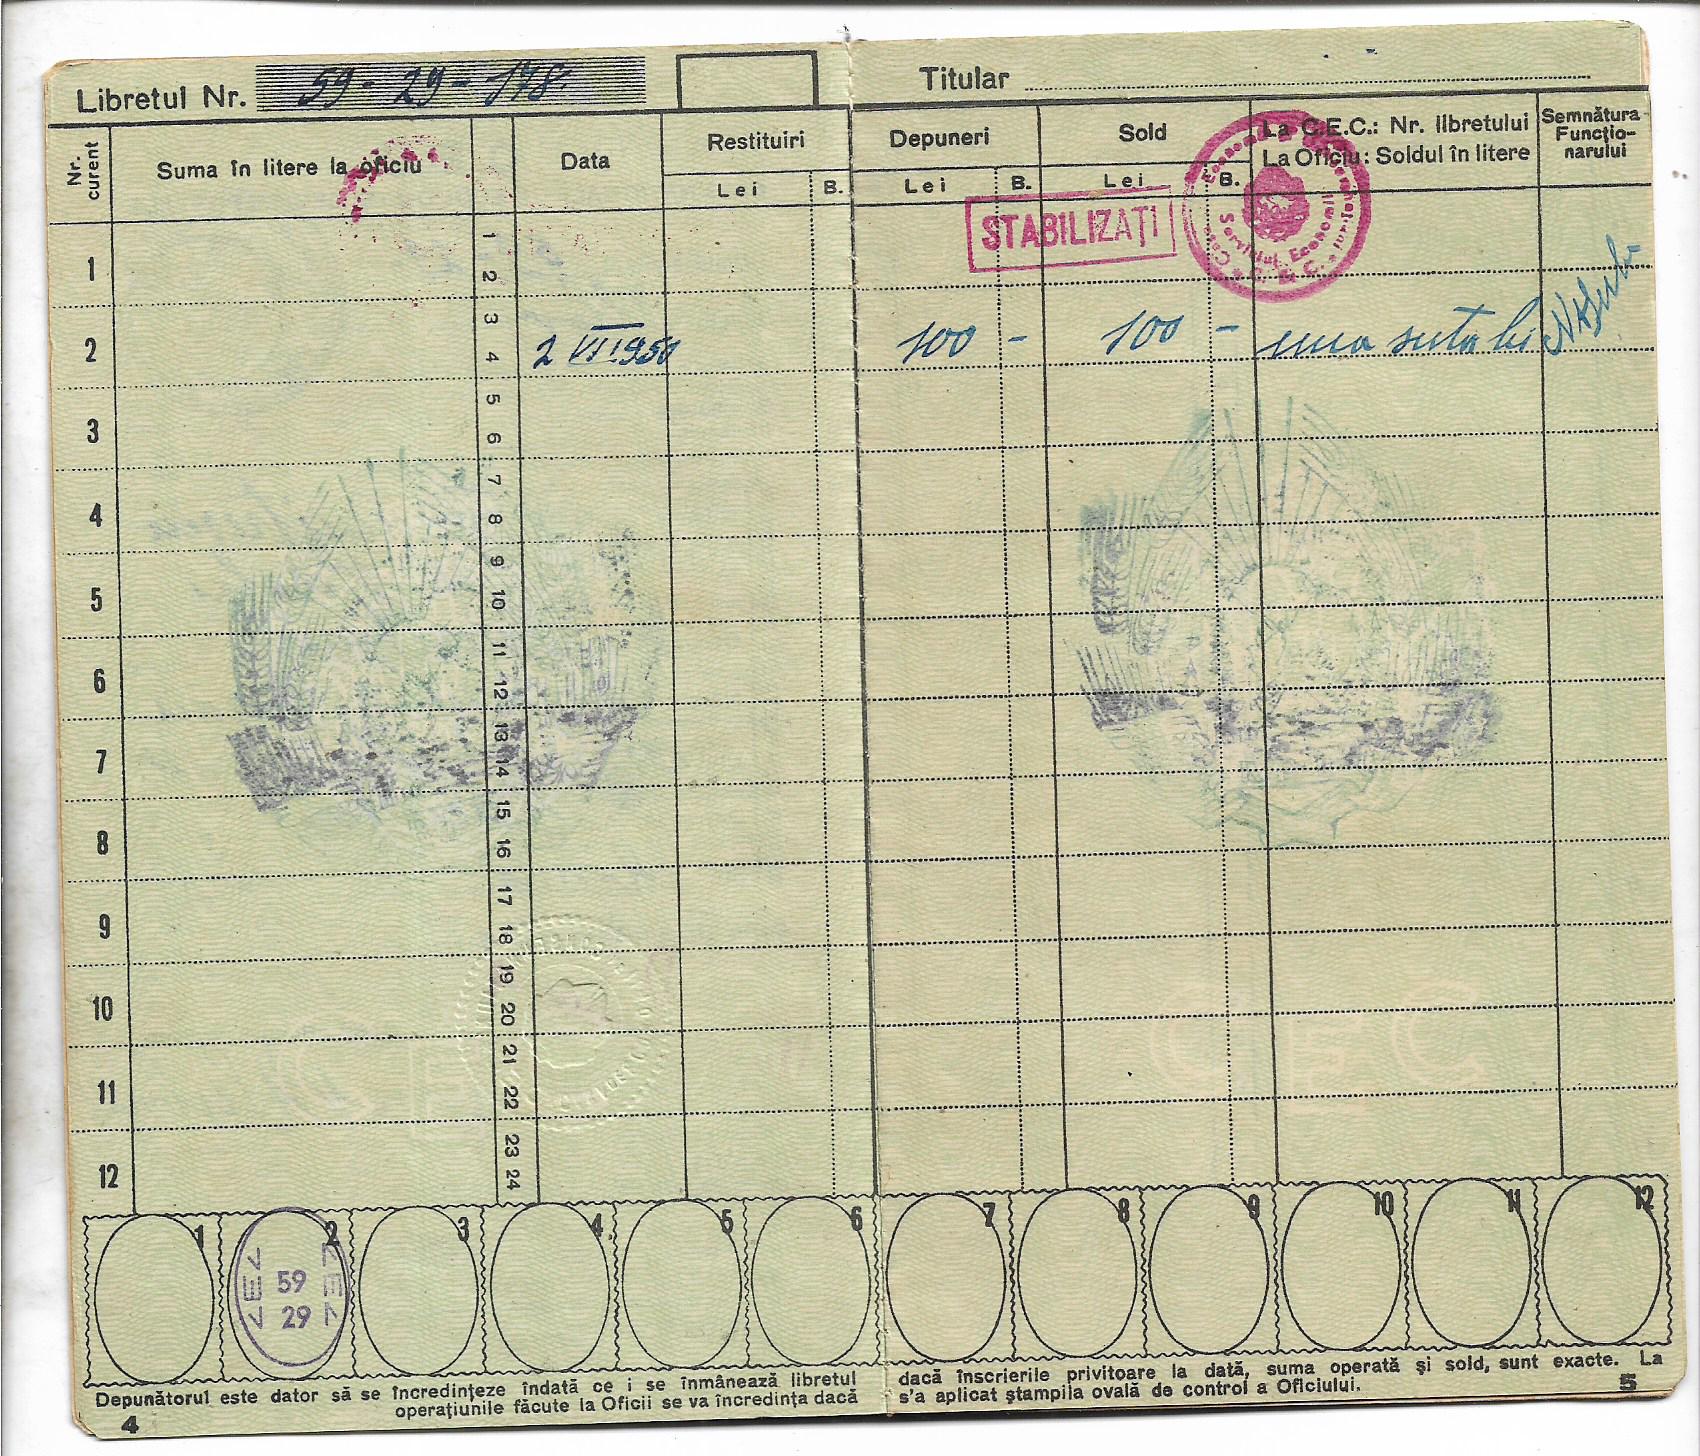 Libretul Nr. 59-29-178
Titular
Nr. curent
Suma în litere la oficiu
Data
Restituiri
Lei B.
Depuneri
Lei B.
Sold
Lei B.
La C.E.C.: Nr. libretului
La Oficiu: Soldul în litere
Semnătura
Funcțio-
narului
STABILIZAȚI
Serviciul Economii
C. E. C.
1
2 2 VII 1950 100 - 100 - una suta lei
3
4
5
6
7
8
9
10
11
12
1 2 3 4 5 6 7 8 9 10 11 12 13 14 15 16 17 18 19 20 21 22 23 24
C E C
C E C
1 2 3 4 5 6 7 8 9 10 11 12
59
29
Depunătorul este dator să se încredințeze îndată ce i se înmânează libretul
operațiunile făcute la Oficii se va încredința dacă
4
dacă înscrierile privitoare la dată, suma operată și sold, sunt exacte. La
s'a aplicat ștampila ovală de control a Oficiului.
5